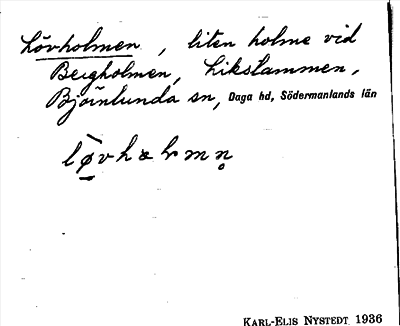 Lövholmen, liten holme vid
Bergholmen, Likstammen,
Björnlunda sn, Daga hd, Södermanlands län
KARL-ELIS NYSTEDT 1936